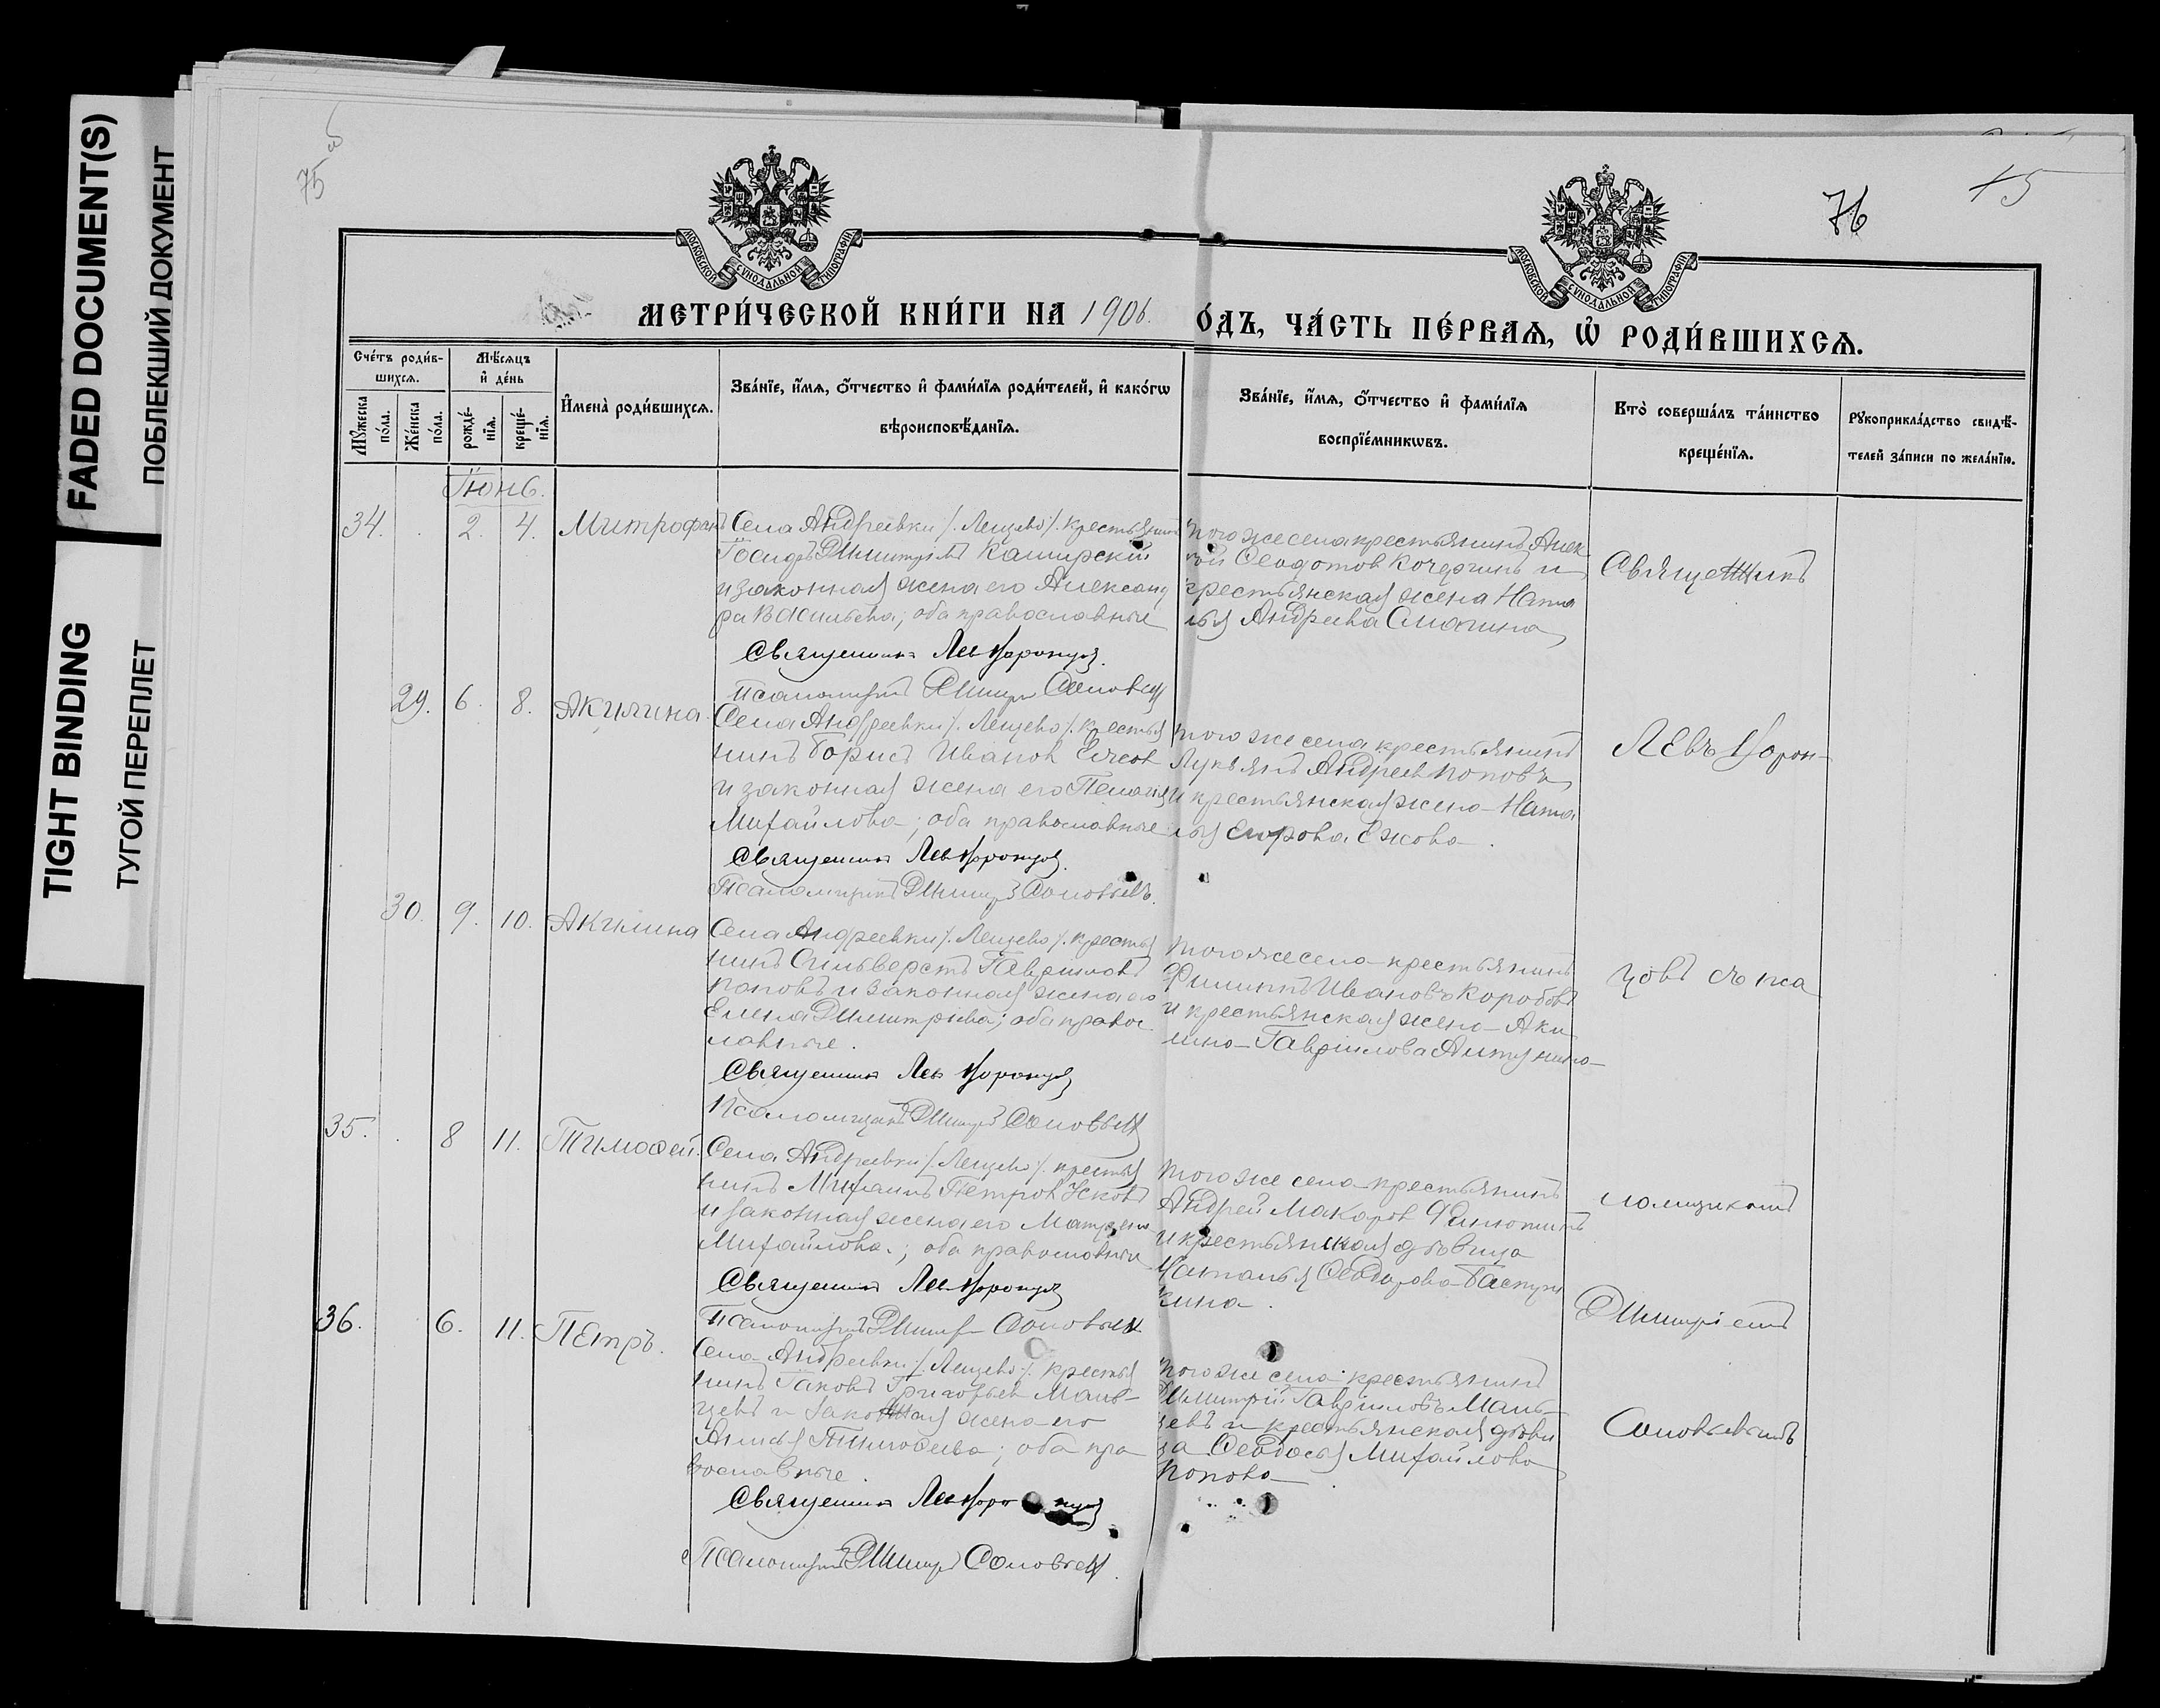 FADED DOCUMENT(S)
ПОБЛЕКШИЙ ДОКУМЕНТ
TIGHT BINDING
ТУГОЙ ПЕРЕПЛЕТ
75
76
75
МОСКОВСКОЙ СѴНОДАЛЬНОЙ ТИПОГРАФІИ
МОСКОВСКОЙ СѴНОДАЛЬНОЙ ТИПОГРАФІИ
МЕТРИ́ЧЕСКОЙ КНИ́ГИ НА 1906.
О́ДЪ, ЧА́СТЬ ПЕ́РВАѦ, Ѽ РОДИ́ВШИХСѦ.
Сче́тъ роди́в-
шихсѧ.
Мѣ́сѧцъ
и҆ де́нь
Му́жеска по́ла.
Же́нска по́ла.
рожде́-нїѧ.
креще́-нїѧ.
И҆мена̀ роди́вшихсѧ.
Зва́нїе, и҆́мѧ, ѻ҆́тчество и҆ фами́лїѧ роди́телей, и҆ како́гѡ
вѣроисповѣ́данїѧ.
Зва́нїе, и҆́мѧ, ѻ҆́тчество и҆ фами́лїѧ
воспрїе́мникѡвъ.
Кто̀ соверша́лъ та́инство
креще́нїѧ.
Рꙋкоприкла́дство свидѣ́-
телей за́писи по жела́нїю.
Іюнь.
34. 2. 4. Митрофанъ
Села Андреевки /. Лещево /. крестьянинъ
Іосифъ Димитріевъ Каширскій
и законная жена его Александ
ра Васильева; оба православные
Священникъ Левъ Воронцовъ.
Псаломщикъ Димитр Соловьевъ
того же села крестьянинъ Алек
сѣй Ѳеодотов Кочергинъ и
крестьянская жена Ната
лья Андреева Смагина
29. 6. 8. Акилина
Села Андреевки /. Лещево /. крестья
нинъ Борисъ Иванов Ежов
и законная жена его Пелагия
Михайлова; оба православные
Священникъ Левъ Воронцовъ.
Псаломщикъ Димитр Соловьевъ.
того же села крестьянинъ
Лукьянъ Андреев Поповъ
и крестьянская жена Ната
лья Ежова.
30. 9. 10. Акилина
Села Андреевки /. Лещево /. крестья
нинъ Сильверстъ Гавріиловъ
Поповъ и законная жена его
Елена Димитріева; оба правос
лавные.
Священникъ Левъ Воронцовъ
Псаломщикъ Димитр Соловьевъ
того же села крестьянинъ
Филиппъ Ивановъ Коробовъ
и крестьянская жена Аки
лина Гавріилова
35. 8 11. Тимоѳей.
Села Андреевки /. Лещево /. крестья
нинъ Михаилъ Петров Усковъ
и законная жена его Матрена
Михайлова; оба православные
Священникъ Левъ Воронцовъ
Псаломщикъ Димитр Соловьевъ
того же села крестьянинъ
Андрей Макаров
и крестьянская дѣвица
Наталья Ѳеодорова
кина.
36. 6. 11. Петръ.
Села Андреевки /. Лещево /. крестья
нинъ Іаковъ Григорьев Маль-
цевъ и законная жена его
Анисья Тимоѳеева; оба пра
вославные.
Священникъ Левъ Воронцовъ
Псаломщикъ Димитр Соловьевъ.
того же села крестьянинъ
Димитрій Гавріиловъ Маль-
цевъ и крестьянская дѣви
ца Ѳеодосья Михайлова
Попова
Священникъ
Левъ Ворон-
цовъ съ пса
ломщикомъ
Димитріемъ
Соловьевымъ